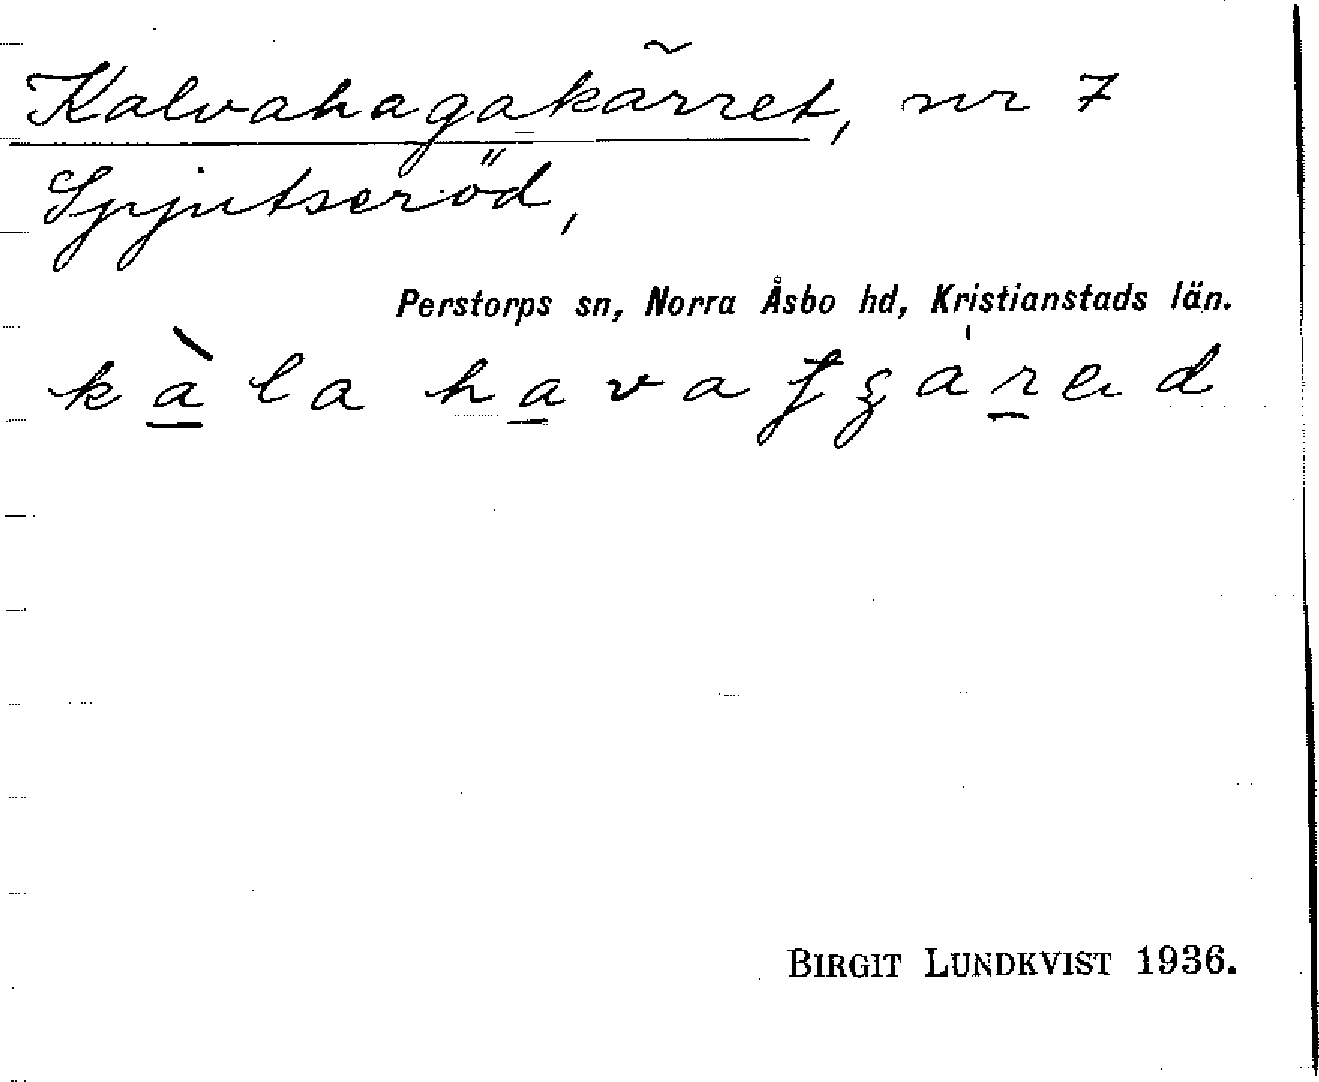 Kalvahagakärret, nr 7
Spjutseröd,
Perstorps sn, Norra Åsbo hd, Kristianstads län.
kàla hava
BIRGIT LUNDKVIST 1936.